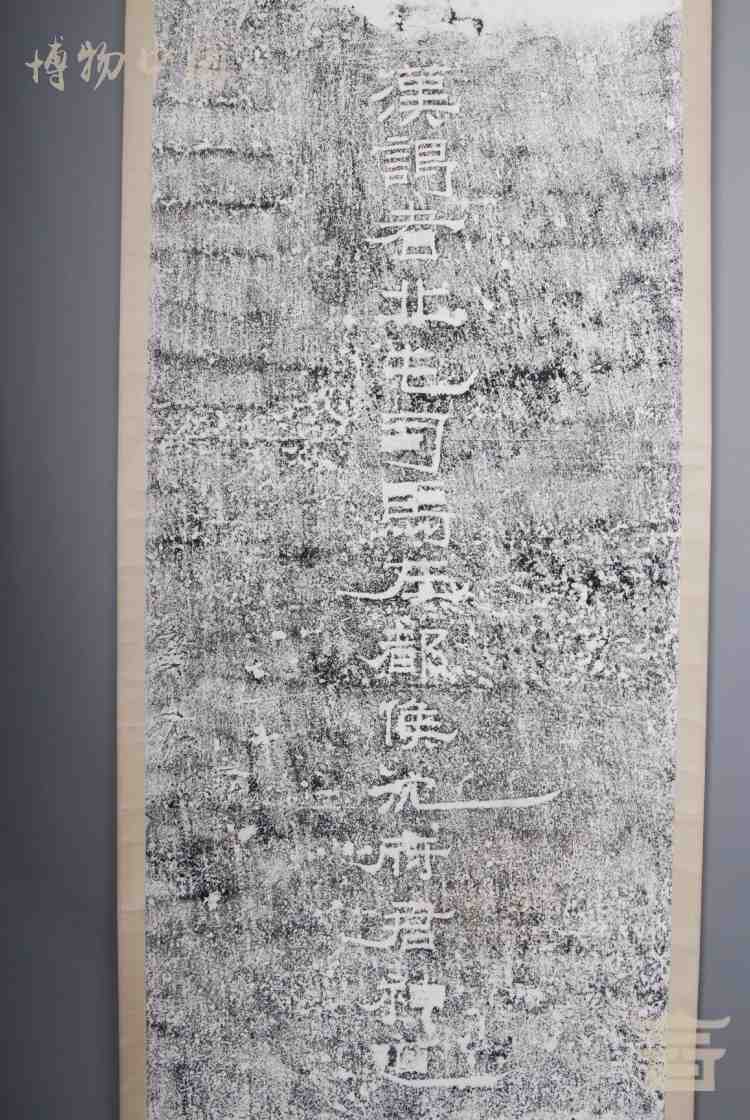 博物中国
漢謁者北屯司馬左都侯沈府君神道